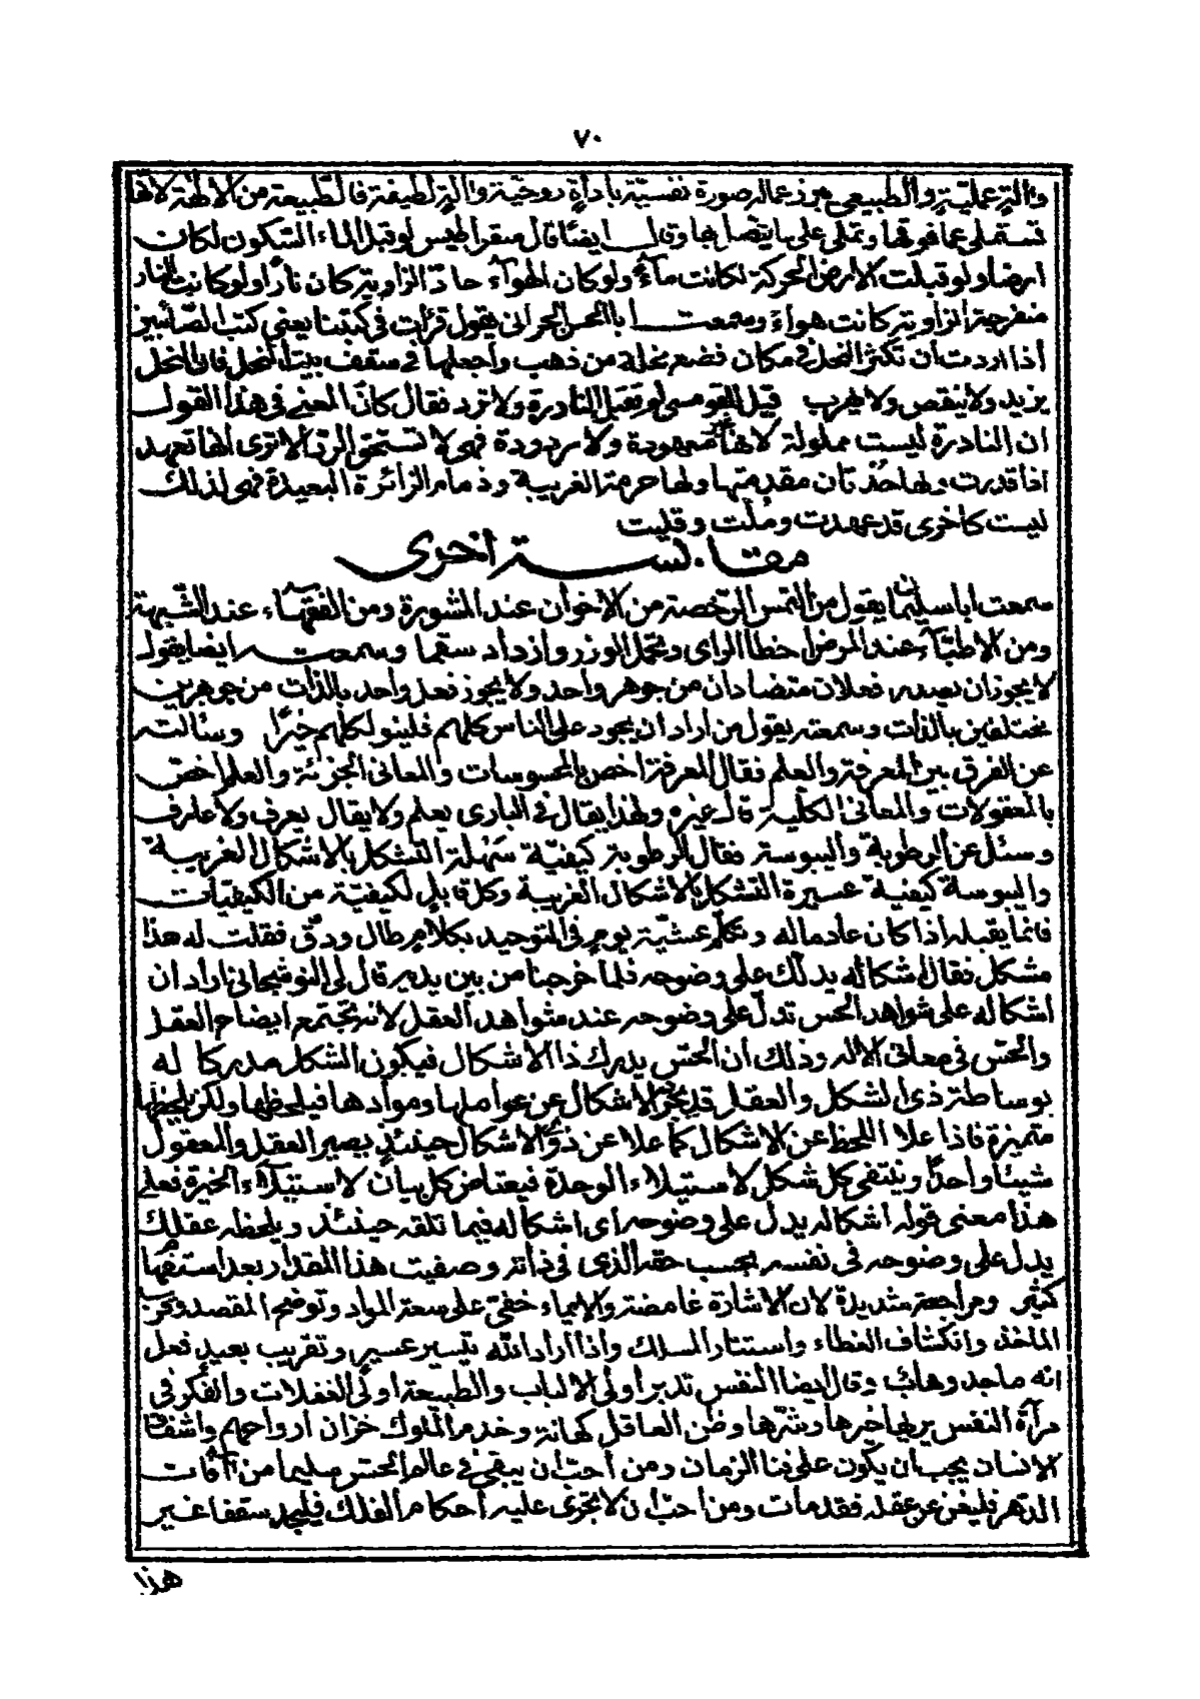 ٧٠
وآلة عملية والطبيعي هو زعما لصورة نفسية بأداة روحية وآلة لطيفة فالطبيعة من الالهة لانها
تستملي عما فوقها وتملي على ما يتصل بها وقال ايضا قال سقراطيس لو قبل الماء السكون لكان
ارضا ولو قبلت الارض الحركة لكانت مآء ولو كان الهوآء حادّ الزاوية كان نارا ولو كانت النار
منفرجة الزاوية كانت هواء وسمعت أبا الحسن الحراني يقول قرأت في كتبنا يعني كتب الصّائبين
أذا اردت أن تكثر النحل في مكان فضع نحلة من ذهب واجعلها في سقف بيت النحل فان النحل
يزيد ولا ينقص ولا يهرب قيل للقومسي لم تقبل النادرة ولا ترد فقال كانّ المعنى في هذا القول
ان النادرة ليست مملولة لانها غير معهودة ولا مردودة فهي لا تستحق الردّ الا ترى انها تعهد
اذا قدرت ولها حُذتان مقدمتها ولها حرمة الغريبة وذمام الزائرة البعيدة فهي لذلك
ليست كاخرى قد عهدت ومُلّت وقليت
مقابسة أخرى
سمعت ابا سليمان يقول من التمس الرّخصة من الاخوان عند المشورة ومن الفقهآء عند الشّبهة
ومن الاطبّآء عند المرض أخطا الراي وتحمل الوزر وازداد سقما وسمعته ايضا يقول
لا يجوز ان يصدر فعلان متضادان من جوهر واحد ولا يجوز فعل واحد بالذات من جوهرين
مختلفين بالذات وسمعته يقول من اراد ان يجود على الناس كلهم فلينو لكلهم خيرًا وسألته
عن الفرق بين المعرفة والعلم فقال المعرفة اخص بالمحسوسات والمعاني الجزئية والعلم أخصّ
بالمعقولات والمعاني الكلّية قال غيره ولهذا يقال في الباري يعلم ولا يقال يعرف ولا عارف
وسئل عن الرطوبة واليبوسة فقال الرطوبة كيفيّة سَهْلة التشكل بالاشكال الغريبة
واليبوسة كيفية عسيرة التشكل بالاشكال الغريبة وكل قابل لكيفيّة من الكيفيّات
فانما يقبله أذا كان عادما له وتكلّم عشيّة يوم في التوحيد بكلام طال ودقّ فقلت له هذا
مشكل فقال اشكاله يدلك على وضوحه فلما خرجنا من بين يديه قال لي النوشجاني أراد ان
اشكاله على شواهد الحس تدلّ على وضوحه عند شواهد العقل لانه يجتمع ايضاح العقل
والحسّ في معاني الاله وذلك أن الحسّ يدرك ذا الاشكال فيكون الشكل مدركا له
بوساطة ذي الشكل والعقل قد يجرّد الأشكال عن عواملها وموادها فيلحظها ولكن يلحظها
متميزة فاذا علا اللحظ عن الاشكال كما علا عن ذوي الاشكال حينئذٍ يصير العقل والمعقول
شيئا واحدًا وينتفي كل شكل لاستيلاء الوحدة فيعتاض كل بيان لاستيلآء الحيرة فعلى
هذا معنى قوله اشكاله يدل على وضوحه أي اشكاله فيما تلقه حينئذ ويلحظه عقلك
يدل على وضوحه في نفسه بحسب حقه الذي في ذاته وصفيت هذا المقدار بعد استفهام
كثير ومراجعة شديدة لان الاشارة غامضة والايماء خفيّ على سعة المواد وتوضح المقصد وقرب
الماخذ وانكشاف الغطاء واستنار المسلك واذا أراد الله تيسير عسير وتقريب بعيد فعل
انه ماجد وهاب وقال ايضا النفس تدبر أولي الالباب والطبيعة اولي الغفلات والفكر في
مرآة النفس يريها خيرها وشرّها وظن العاقل كهانة وخدم الملوك خزان أرواحهم واشفق
الانسان يجب أن يكون على ذنا الزمان ومن أحبّ أن يبقى في عالم الحس سليما من آفات
الدهر فليغن عن عقله فقد مات ومن أحبّ أن لا تجري عليه أحكام الفلك فليجد سقفا غير
هذا